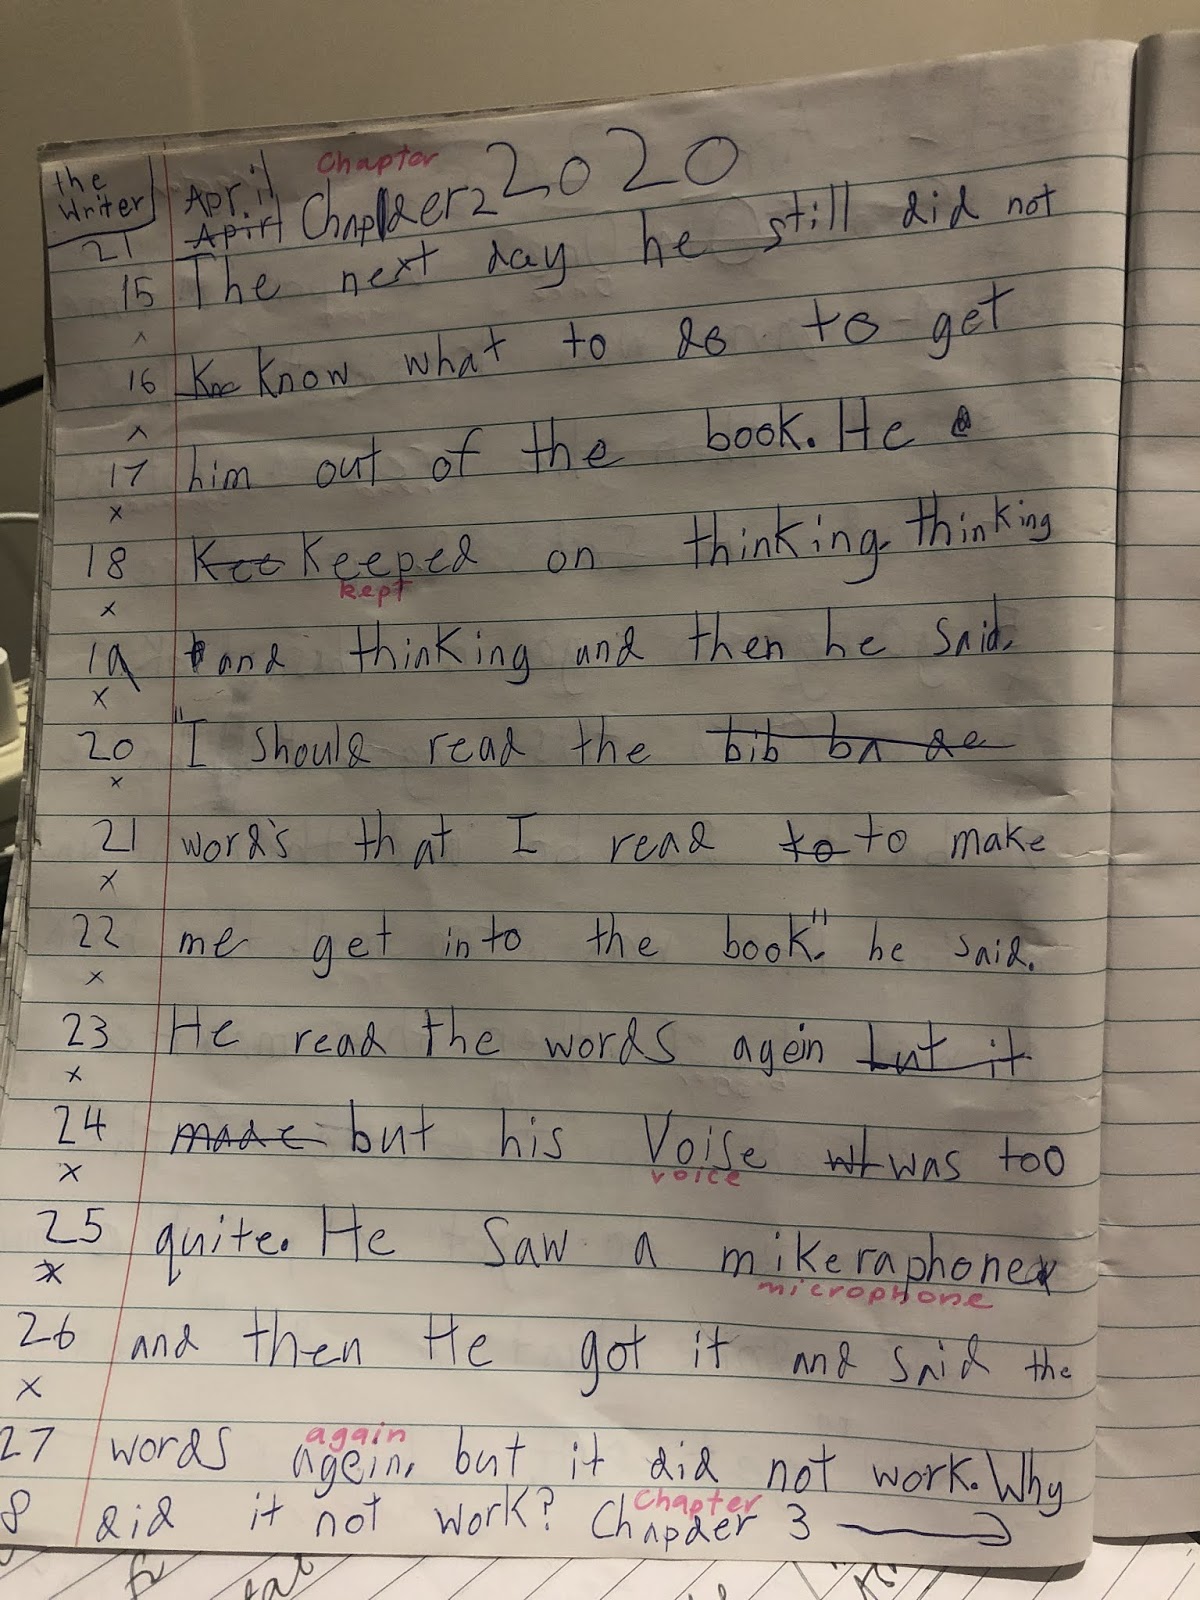 the
writer
21
April Chapter 2020
Apirl Chapder 2
15 The next day he still did not
16 Kno Know what to do to get
17 him out of the book. He
18 Kee Keeped on thinking thinking
kept
19 and thinking and then he said.
20 "I should read the bib
21 word's that I read to to make
22 me get into the book." he said.
23 He read the words agein but it
24 made but his Voise was too
voice
25 quite. He saw a mikeraphone
microphone
26 and then He got it and said the
again
27 words agein. but it did not work. Why
Chapter
8 did it not work? Chapder 3